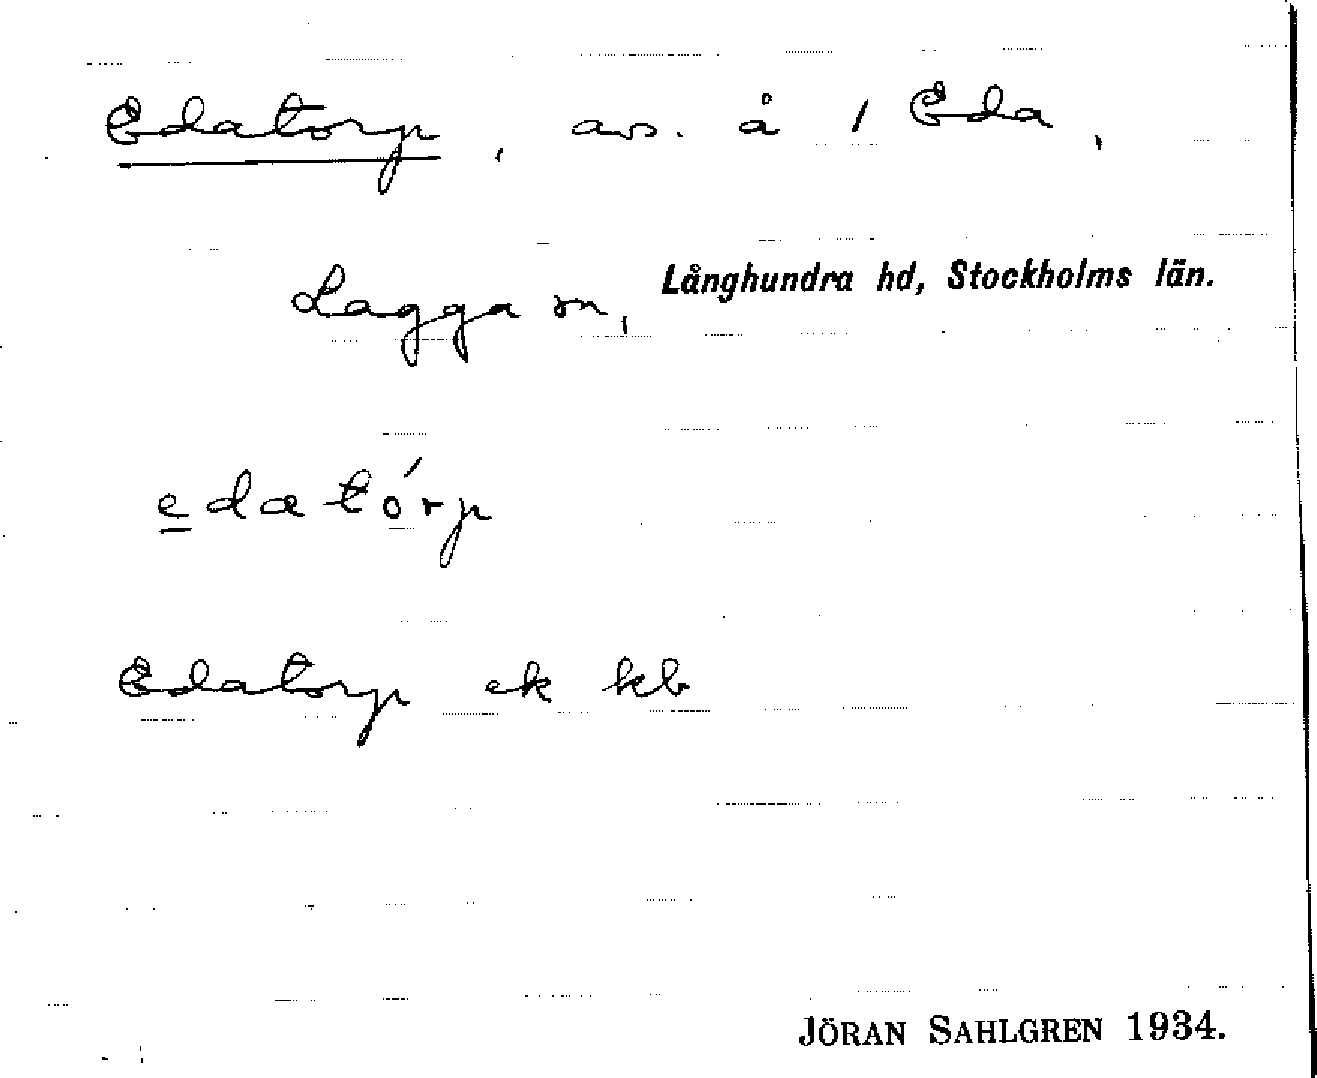 Edatorp, avs. å 1 Eda,
Lagga sn, Långhundra hd, Stockholms län.
edatórp
Edatorp ek kb
JÖRAN SAHLGREN 1934.